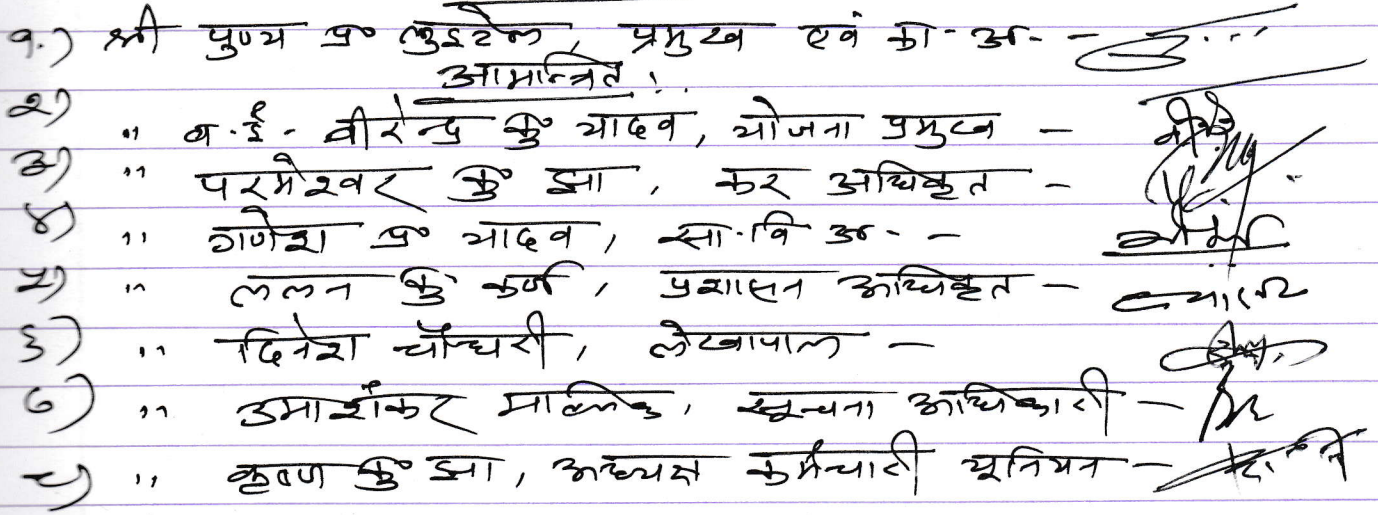 १.) श्री पुण्य प्र० लुइटेल, प्रमुख एवं का.अ. -
आमन्त्रित :
२) " व.ई. वीरेन्द्र कु० यादव, योजना प्रमुख -
३) " परमेश्वर कु० झा, कर अधिकृत -
४) " गणेश प्र० यादव, सा.वि अ. -
५) " ललन कु० कर्ण, प्रशासन अधिकृत -
६) " दिनेश चौधरी, लेखापाल -
७) " उमाशंकर मल्लिक, सूचना अधिकारी -
८) " कृष्ण कु० झा, अध्यक्ष कर्मचारी यूनियन -